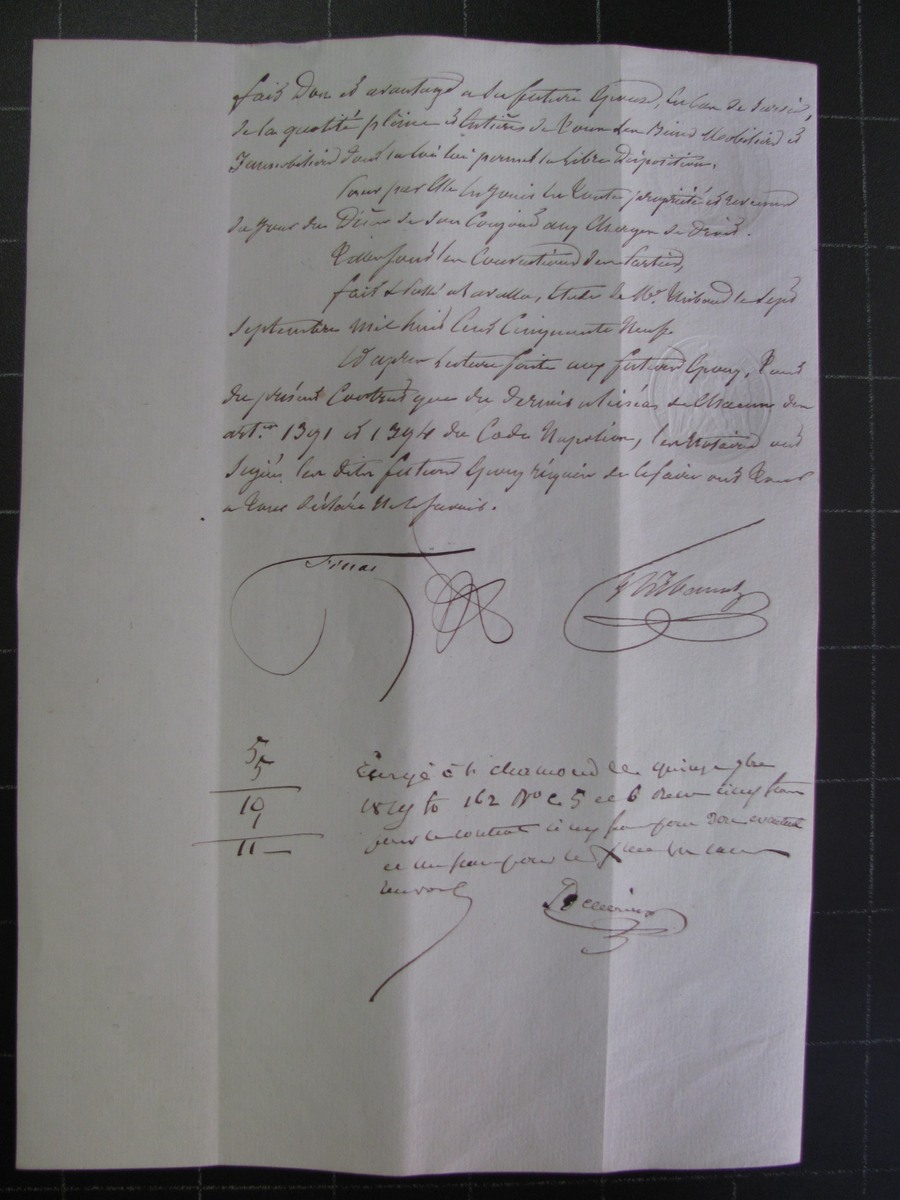 fait Don et avantage à sa future Epouse, en cas de survie,
de la quotité pleine et entière de tous ses Biens Mobiliers et
Immobiliers dont la loi lui permet la libre disposition.
Pour par Elle en jouir en toute propriété et revenus
du jour du Décès de son Conjoint aux Charges de droit.
Telles sont les Conventions des Parties,
fait & Passé à Étude de Me le Sept
Septembre Mil huit Cent Cinquante Neuf.
Et après Lecture faite aux futurs Epoux, tant
du présent Contrat que du dernier alinéa de Chacun des
art. 1391 et 1394 du Code Napoléon, les Notaires ont
Signé, les dits futurs Epoux requis de le faire ont tous
a Nous déclaré Ne le Savoir.
5
5
10
1
11 —
Enregé à St chamond le quinze 7bre
1859 fo 162 Vo c 5 et 6 Recu cinq francs
pour le contrat cinq francs pour don eventuel
et un franc pour le Xme